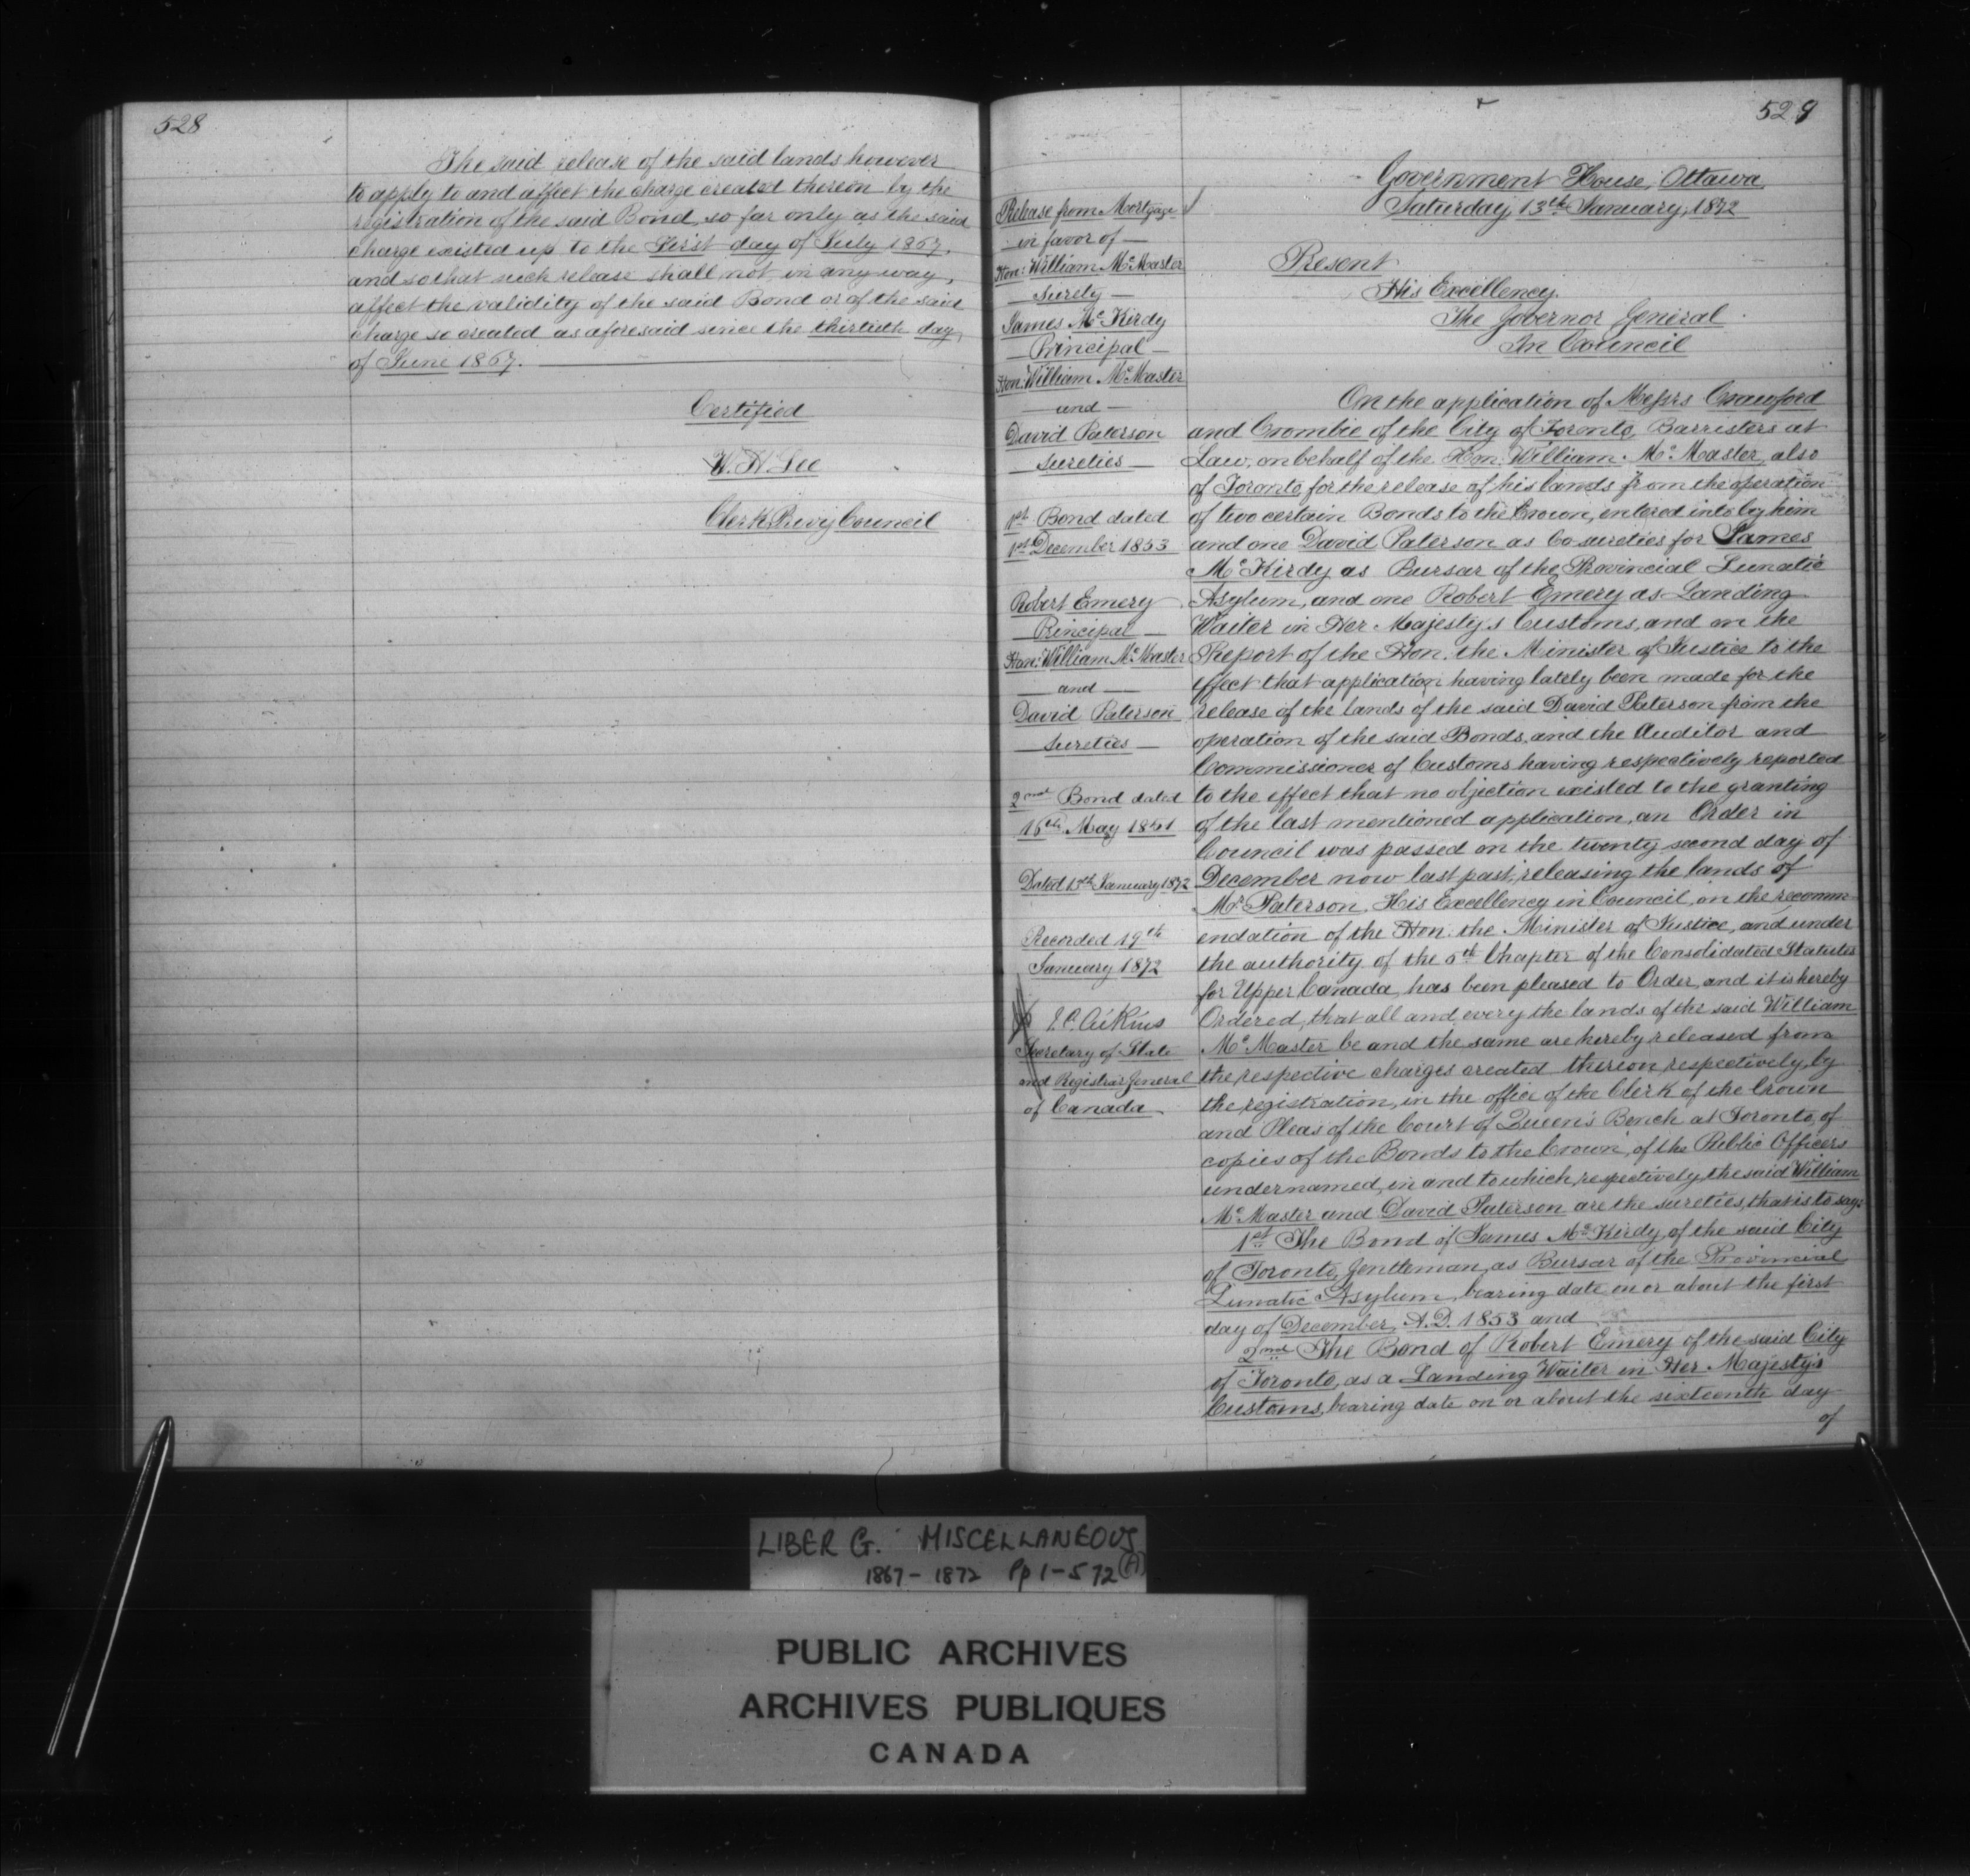 528
The said release of the said lands however
to apply to and affect the charge created thereon by the
registration of the said Bond, so far only as the said
charge existed up to the First day of July 1867.
and so that such release shall not in any way,
affect the validity of the said Bond or of the said
charge so created as aforesaid since the thirtieth day,
of June 1867.
Certified
W. H. Lee
Clerk Privy Council
529
Release from Mortgage
in favor of
Hon: William McMaster
Surety
James McKirdy
Principal
Hon: William McMaster
and
David Paterson
Sureties
1st Bond dated
1st December 1853
Robert Emery
Principal
Hon: William McMaster
and
David Paterson
Sureties
2nd Bond dated
16th May 1851
Dated 13th January 1872
Recorded 19th
January 1872
J. C. Aikins
Secretary of State
and Registrar General
of Canada
Government House, Ottawa,
Saturday, 13th January, 1872
Present
His Excellency.
The Governor General
In Council
On the application of Messrs Crawford
and Crombie of the City of Toronto, Barristers at
Law, on behalf of the Hon. William McMaster, also
of Toronto, for the release of his lands from the operation
of two certain Bonds to the Crown, entered into by him
and one David Paterson as Co-sureties for James
McKirdy as Bursar of the Provincial Lunatic
Asylum, and one Robert Emery as Landing
Waiter in Her Majesty's Customs, and on the
Report of the Hon. the Minister of Justice to the
effect that application having lately been made for the
release of the lands of the said David Paterson from the
operation of the said Bonds, and the Auditor and
Commissioner of Customs having respectively reported
to the effect that no objection existed to the granting
of the last mentioned application, an Order in
Council was passed on the twenty second day of
December now last past, releasing the lands of
Mr Paterson. His Excellency in Council, on the recomm-
endation of the Hon. the Minister of Justice, and under
the authority of the 5th Chapter of the Consolidated Statutes
for Upper Canada, has been pleased to Order, and it is hereby
Ordered, that all and every the lands of the said William
McMaster be and the same are hereby released from
the respective charges created thereon respectively by
the registration, in the office of the Clerk of the Crown
and Pleas of the Court of Queen's Bench at Toronto, of
copies of the Bonds to the Crown, of the Public Officers
undernamed, in and to which, respectively, the said William
McMaster and David Paterson are the sureties, that is to say:
1st The Bond of James McKirdy, of the said City
of Toronto, Gentleman, as Bursar of the Provincial
Lunatic Asylum, bearing date on or about the first
day of December, A.D. 1853 and
2nd The Bond of Robert Emery of the said City
of Toronto, as a Landing Waiter in Her Majesty's
Customs, bearing date on or about the sixteenth day
of
LIBER G. MISCELLANEOUS
1867-1872 Pp 1-572 (A)
PUBLIC ARCHIVES
ARCHIVES PUBLIQUES
CANADA